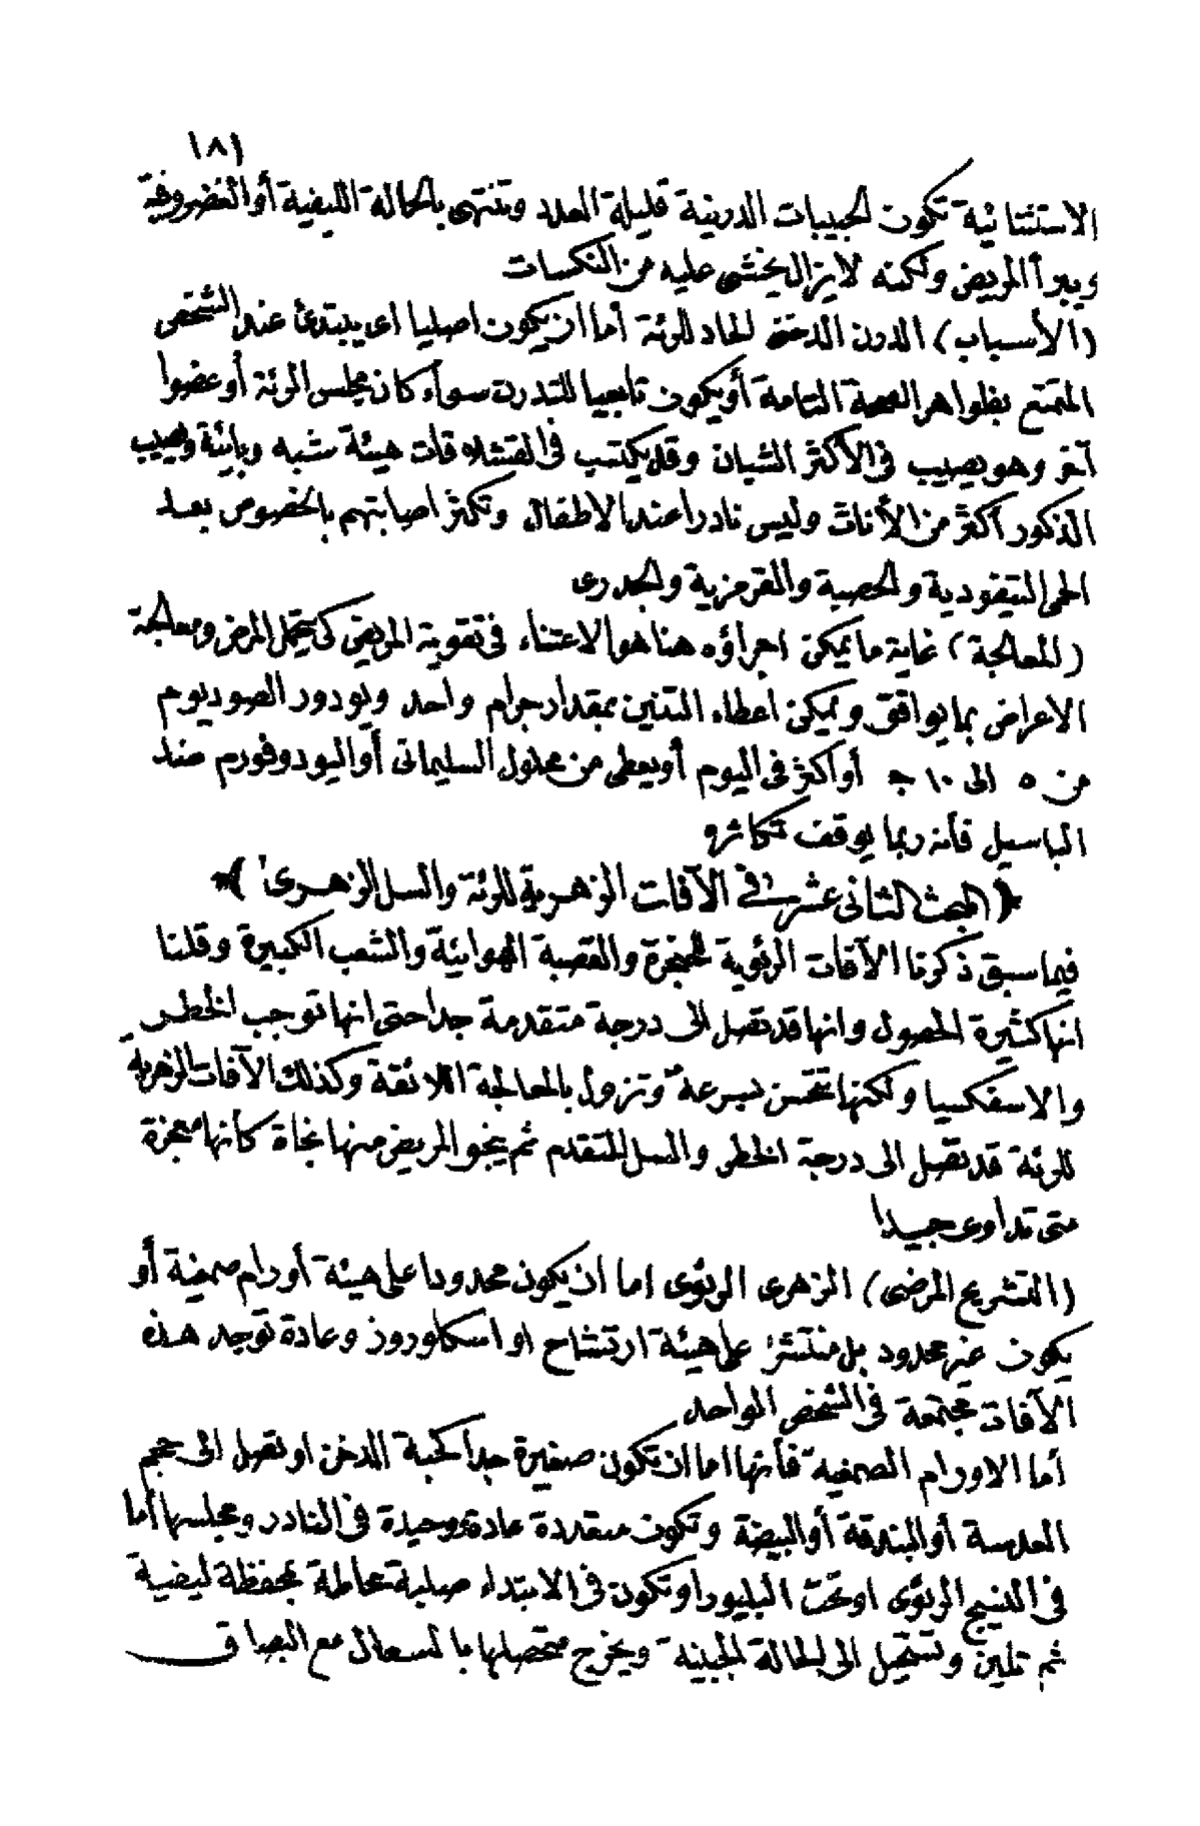 ١٨١
الاستثنائية تكون الحبيبات الدرنية قليلة العدد وتنتهى بالحالة الليفية أو الغضروفية
ويبرأ المريض ولكنه لا يزال يخشى عليه من النكسات
(الأسباب) الدرن الدخنى الحاد للرئة أما ان يكون اصليا اى يبتدئ عند الشخص
المتمتع بظواهر الصحة التامة أو يكون تابعيا للتدرن سواء كان مجلس الرئة أو عضوا
آخر وهو يصيب فى الأكثر الشبان وقد يكتسب فى القشلاقات هيئة شبه وبائية ويصيب
الذكور أكثر من الأناث وليس نادرا عند الاطفال وتكثر اصابتهم بالخصوص بعد
الحمى التيفودية والحصبة والقرمزية والجدرى
(المعالجة) غاية ما يمكن اجراؤه هنا هو الاعتناء فى تقوية المريض كى يتحمل المرض ومعالجة
الاعراض بما يوافق ويمكن اعطاء التنين بمقدار جرام واحد ويودور الصوديوم
من ٥ الى ١٠ جـ أو اكثر فى اليوم أو يعطى من محلول السليمانى أو اليودوفورم ضد
الباسيل فأنه ربما يوقف تكاثره
﴿(المبحث الثانى عشر فى الآفات الزهرية للرئة والسل الزهرى)﴾
فيما سبق ذكرنا الآفات الرئوية للحنجرة والقصبة الهوائية والشعب الكبيرة وقلنا
انها كثيرة الحصول وانها قد تصل الى درجة متقدمة جدا حتى انها توجب الخطر
والاسفكسيا ولكنها تتحسن بسرعة وتزول بالمعالجة اللائقة وكذلك الآفات الزهرية
للرئة قد تصل الى درجة الخطر والسل المتقدم ثم ينجو المريض منها نجاة كأنها معجزة
متى تداوى جيدا
(التشريح المرضى) الزهرى الرئوى اما ان يكون محدودا على هيئة أورام صمغية أو
يكون غير محدود بل منتشر على هيئة ارتشاح او اسكلوروز وعادة توجد هذه
الآفات مجتمعة فى الشخص الواحد
أما الاورام الصمغية فأنها اما ان تكون صغيرة جدا كحبة الدخن او تصل الى حجم
العدسة أو البندقة أو البيضة وتكون متعددة عادة ووحيدة فى النادر ومجلسها أما
فى النسيج الرئوى او تحت البليورا وتكون فى الابتداء صلبة محاطة بمحفظة ليفية
ثم تلين وتستحيل الى الحالة الجبنية ويخرج متحصلها بالسعال مع البصاق